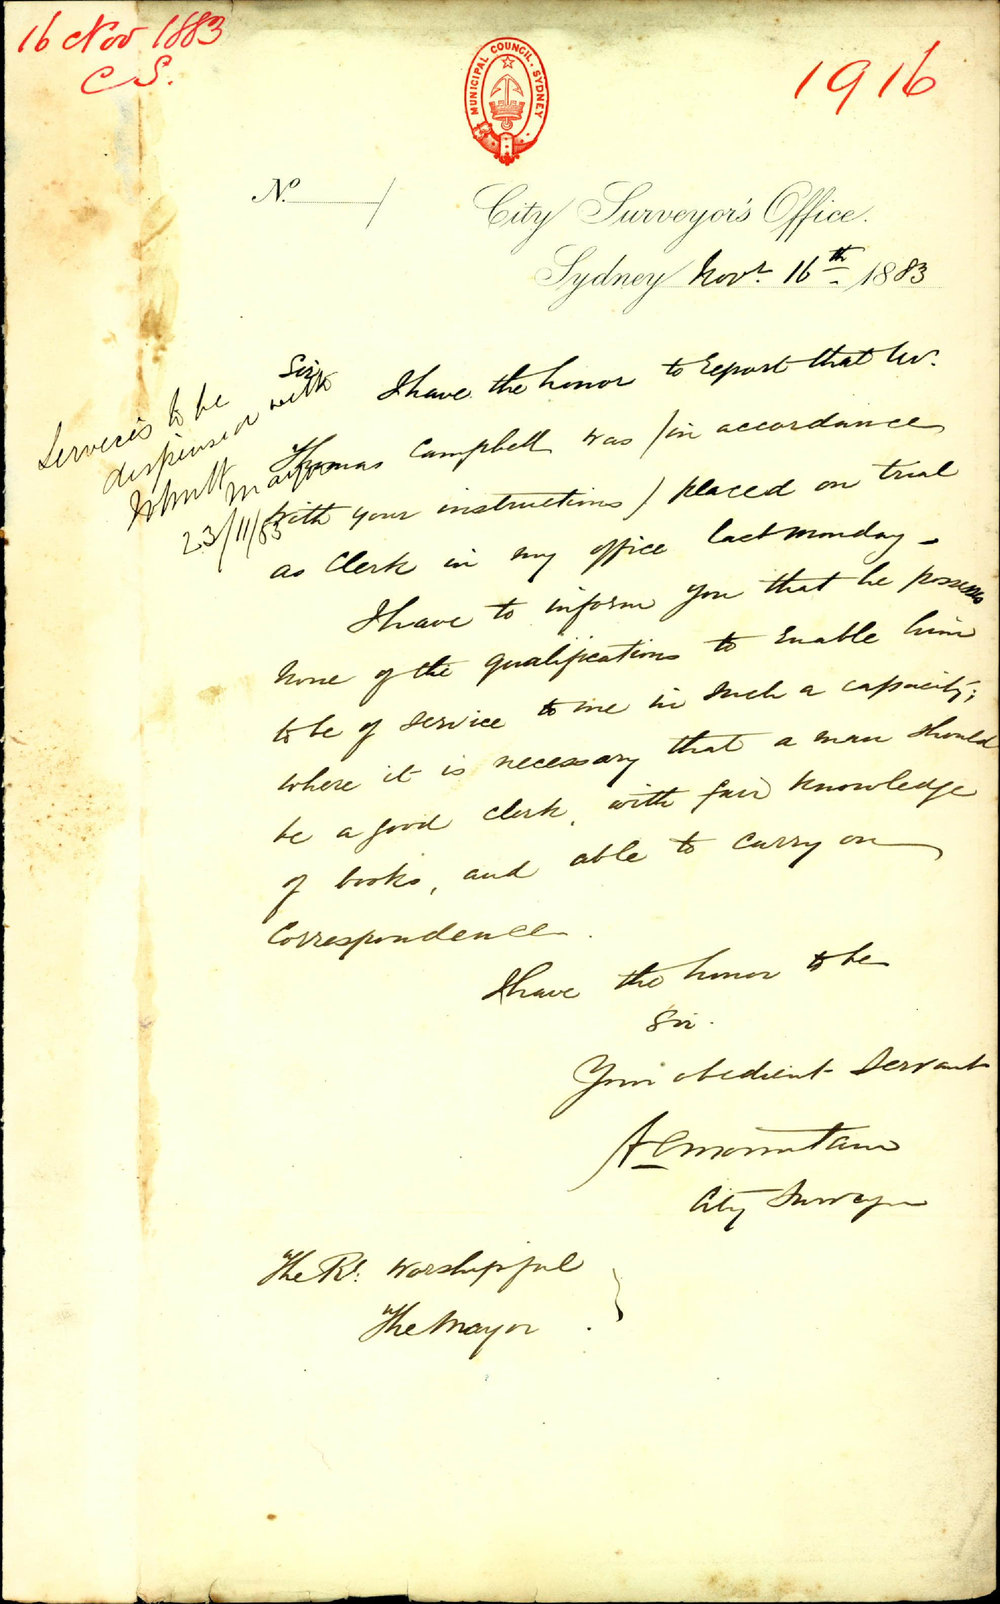 16 Nov 1883
C S.
1916
MUNICIPAL COUNCIL. SYDNEY
No. /
City Surveyor's Office.
Sydney Novr. 16th 1883
Services to be
dispensed with
Mayor
23/11/83
Sir
I have the honor to report that Mr.
Thomas Campbell was / in accordance
with your instructions / placed on trial
as Clerk in my office last Monday -
I have to inform you that he possesses
none of the qualifications to Enable him
to be of service to me in such a capacity;
where it is necessary that a man should
be a good clerk, with fair knowledge
of books, and able to carry on
Correspondence.
I have the honor to be
Sir.
Your obedient Servant
A C Mountain
City Surveyor
The Rt. Worshipful
The Mayor